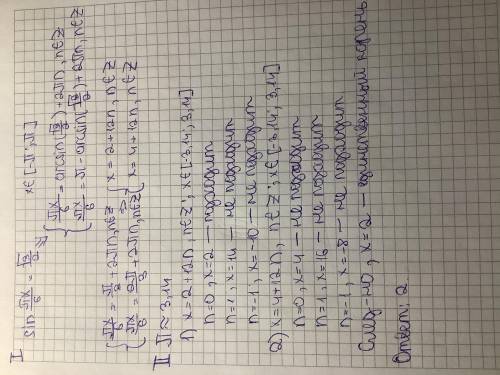 I
sin πx/6 = √3/2   x∈[-π; π]
⇔ { πx/6 = arcsin(√3/2) + 2πn, n∈Z
πx/6 = π - arcsin(√3/2) + 2πn, n∈Z
{ πx/6 = π/3 + 2πn, n∈Z ⇔ { x = 2 + 12n, n∈Z
πx/6 = 2π/3 + 2πn, n∈Z   x = 4 + 12n, n∈Z
II π ≈ 3,14
1) x = 2 + 12n, n∈Z; x∈[-3,14; 3,14]
n=0, x=2 — подходит
n=1, x=14 — не подходит
n=-1, x=-10 — не подходит
2) x = 4 + 12n, n∈Z; x∈[-3,14; 3,14]
n=0, x=4 — не подходит
n=1, x=16 — не подходит
n=-1, x=-8 — не подходит
След-но, x=2 — единственный корень
Ответ: 2.